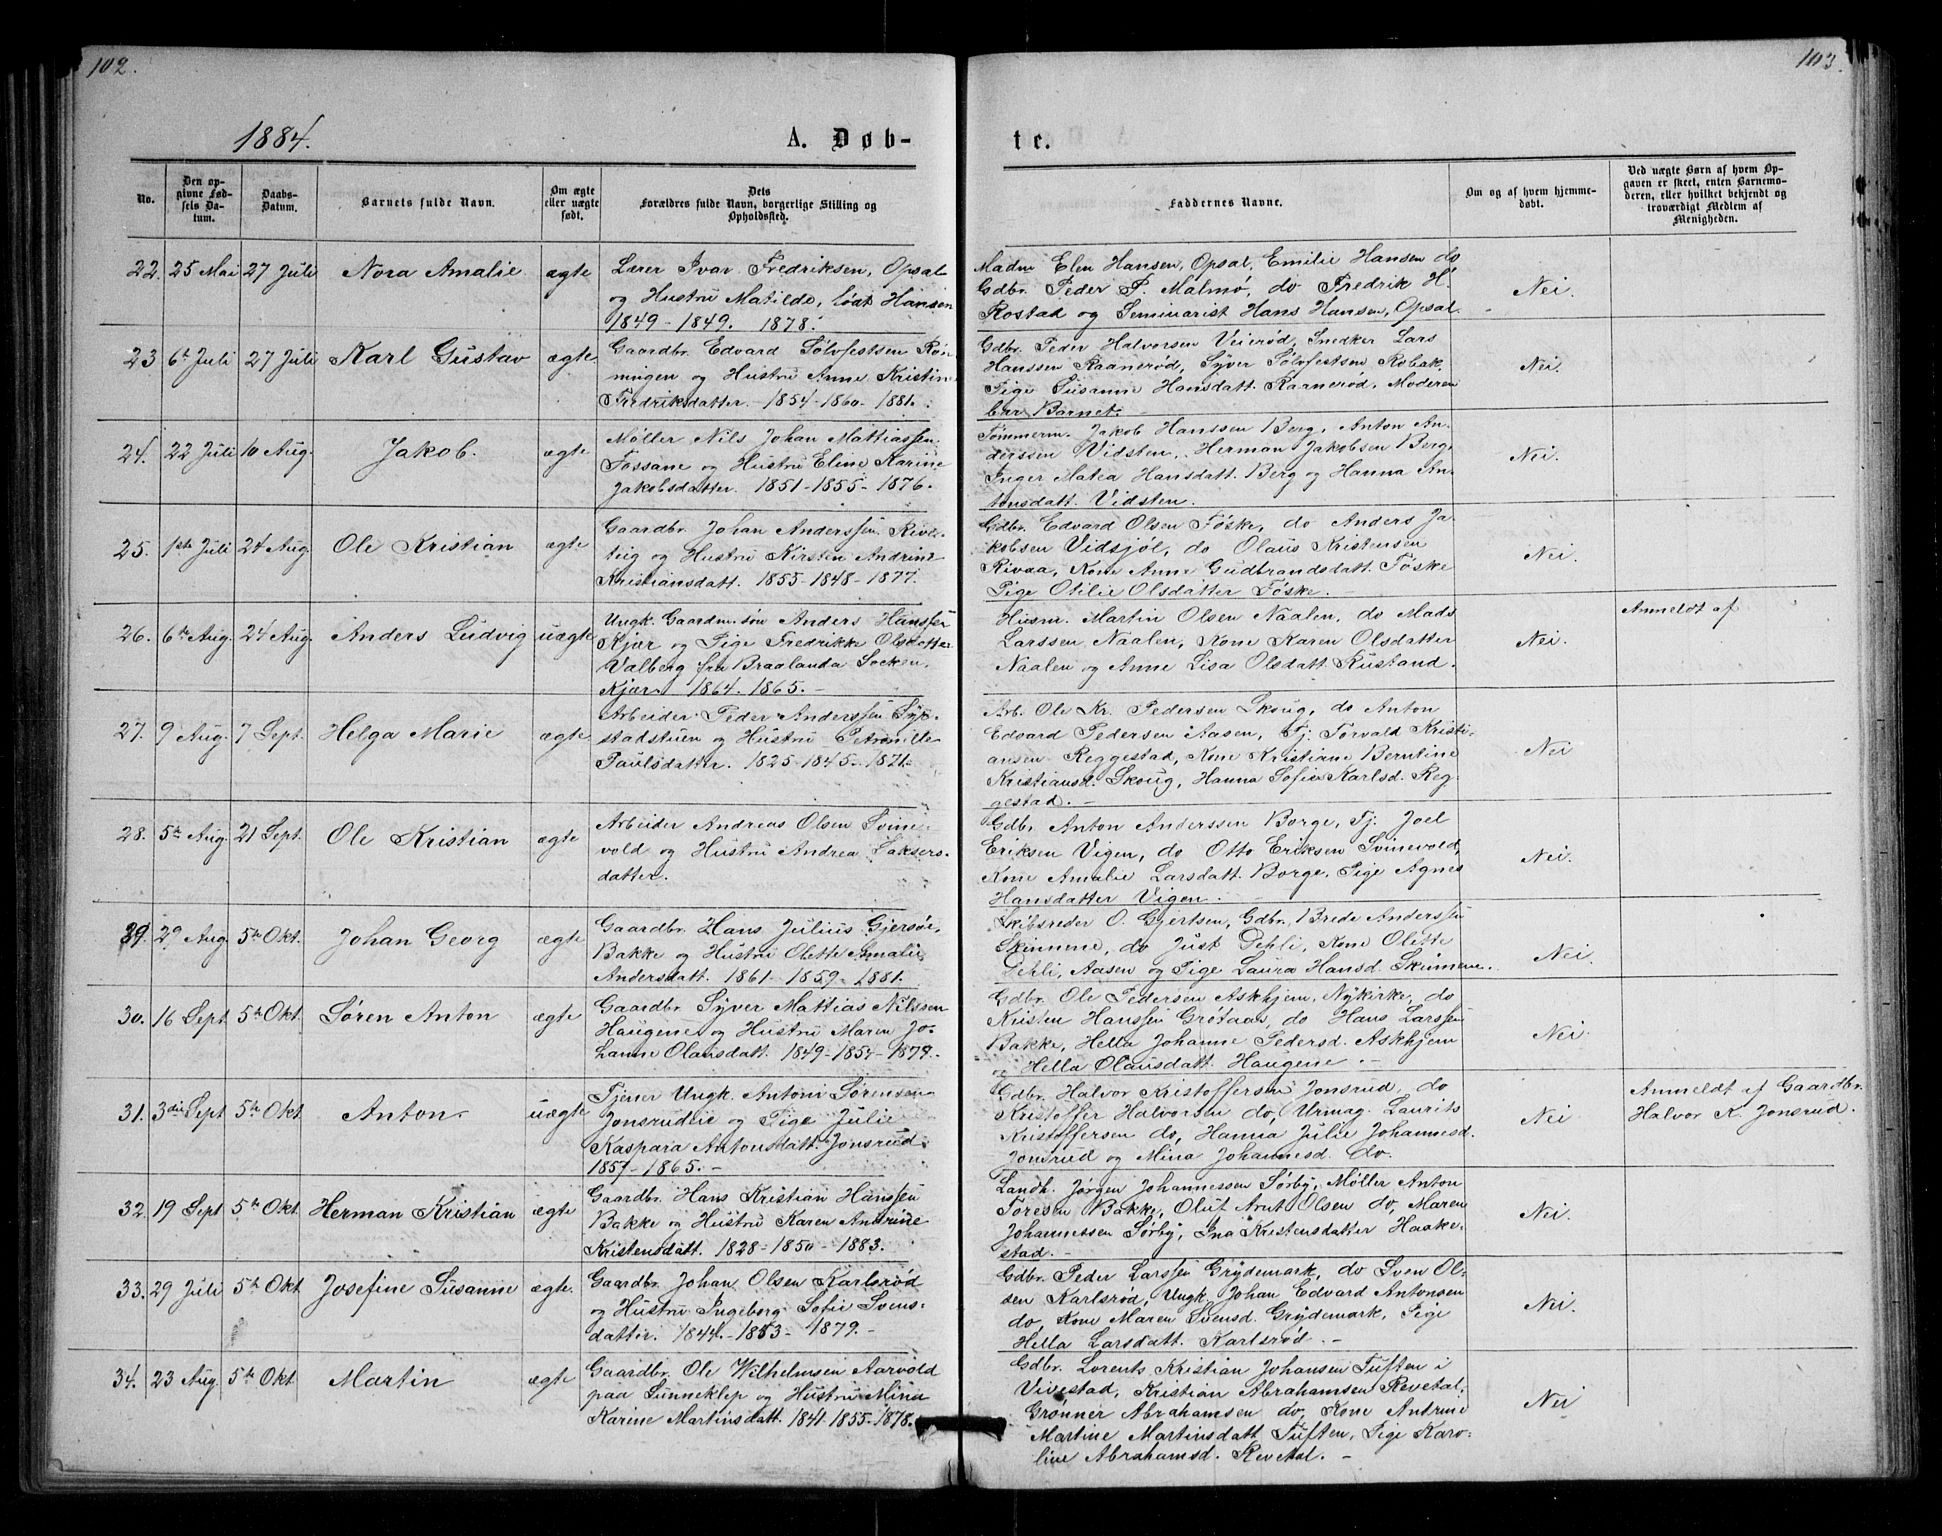 102.
1884.
A. Døb-
No.
Den op-
givne Fød-
sels Da-
tum.
Daabs-
Datum.
Barnets fulde Navn.
Om ægte
eller uægte
født.
Dets
Forældres fulde Navn, borgerlige Stilling og
Opholdssted.
22. 25 Mai 27 Juli Nora Amalie ægte
Lærer Ivar Fredriksen, Opsal
og Hustru Matilde, født Hansen
1849 - 1849. 1878.
23 6te Juli 27 Juli Karl Gustav ægte
Gaardbr. Edvard Sølvfestsen Røn-
ningen og Hustru Anne Kristine
Fredriksdatter. 1854 - 1860 - 1881.
24. 22 Juli 10 Aug. Jakob. ægte
Møller Nils Johan Mattiassen
Fossane og Hustru Eline Karine
Jakobsdatter. 1851 - 1855 - 1876.
25. 1ste Juli 24 Aug. Ole Kristian ægte
Gaardbr. Johan Anderssen
og Hustru Kirsten Andrine
Kristiansdatt. 1855 - 1848 - 1877.
26. 6te Aug. 24 Aug. Anders Ludvig uægte
Ungk. Gaardm. søn Anders Hanssen
Kjær og Pige Fredrikke Olsdatter
Valberg fra Braalanda Socken.
Kjær 1864. 1865. -
27. 9 Aug. 7 Sept. Helga Marie ægte
Arbeider Peder Anderssen
og Hustru Petronille
Paulsdatter. 1825 - 1845 - 1871.
28. 5te Aug. 21 Sept. Ole Kristian ægte
Arbeider Andreas Olsen Svine-
vold og Hustru Andrea Sakers-
datter.
29. 29 Aug. 5te Okt. Johan Georg ægte
Gaardbr. Hans Julius Gjersøe,
Bakke og Hustru Olette Amalie
Andersdatt. 1861 - 1859 - 1881.
30. 16 Sept. 5te Okt. Søren Anton ægte
Gaardbr. Syver Mattias Nilssen
Haugene og Hustru Maren Jo-
hanne Olausdatt. 1849 - 1854 - 1879.
31. 3die Sept 5te Okt Anton uægte
Tjener Ungk. Anton Sørensen
Jonsrudeie og Pige Julie
Kaspara Antonsdatt. Jonsrud.
1857 - 1865. -
32. 19 Sept 5te Okt. Herman Kristian ægte
Gaardbr. Hans Kristian Hanssen
Bakke og Hustru Karen Andrine
Kristensdatt. 1828 - 1850 - 1883.
33. 29 Juli 5te Okt Josefine Susanne ægte.
Gaardbr. Johan Olsen Karlsrød
og Hustru Ingeborg Sofie Svens-
datter. 1844. - 1853 - 1879. -
34. 23 Aug. 5te Okt Martin ægte
Gaardbr. Ole Wilhelmsen Aarvold
paa Sunneklep og Hustru Mina
Karine Martinsdatt. 1841. 1855 - 1878.
103.
te.
Faddernes Navne.
Om og af hvem hjemme-
døbt.
Ved uægte Børn af hvem Op-
gaven er skeet, enten Barnemo-
deren, eller hvilket bekjendt og
troværdigt Medlem af
Menigheden.
Madm Elen Hansen, Opsal, Emilie Hansen do
Gdbr. Peder P. Malmø, do Fredrik H.
Rostad og Seminarist Hans Hansen, Opsal.
Nei.
Gdbr. Peder Halvorsen Veierød, Snedker Lars
Hanssen Raanerød, Syver Sølvfestsen Robak,
Pige Susanne Hansdatt. Raanerød. Moderen
bar Barnet.
Nei.
Tømmerm. Jakob Hanssen Berg, Anton An-
derssen Vidsten, Herman Jakobsen Berg,
Inger Matea Hansdatt. Berg og Hanna An-
tonsdatt. Vidsten.
Nei.
Gdbr. Edvard Olsen Føske, do Anders Ja-
kobsen Vidsjøl, do Olaus Kristensen
Rivaa, Kone Anne Gudbrandsdatt. Føske
Pige Otilie Olsdatter Føske. -
Nei
Husm. Martin Olsen Naalen, do Mads
Larssen Naalen, Kone Karen Olsdatter
Naalen og Anne Lisa Olsdatt. Rustand.
Nei.
Anmeldt af
Arb. Ole Kr. Pedersen Skoug, do Anton
Edvard Pedersen Aasen, Tj. Torvald Kristi-
ansen Reggestad, Kone Kristiane Berntine
Kristiansd. Skoug, Hanna Sofie Karlsd. Reg-
gestad. -
Nei
Gdbr. Anton Anderssen Borge, Tj. Joel
Eriksen Vigen, do Otto Eriksen Svinevold,
Kone Amalie Larsdatt. Borge, Pige Agnes
Hansdatter Vigen.
Nei.
Skibsreder O. Gjertsen, Gdbr. Brede Anderssen
Skimme, do Just Dehli, Kone Olette
Dehli, Aasen og Pige Laura Hansd. Skimme.
Nei.
Gdbr. Ole Pedersen Askhjem, Nykirke, do
Kristen Hanssen Grøtaas, do Hans Larssen
Bakke, Hella Johanne Pedersd. Askhjem
og Hella Olausdatt. Haugene. -
Nei
Gdbr. Halvor Kristoffersen Jonsrud, do
Kristoffer Halvorsen do, Urmag. Laurits
Kristoffersen do, Hanna Julie Johannesd.
Jonsrud og Mina Johannesd. do.
Nei
Anmeldt af Gaardbr.
Halvor K. Jonsrud.
Landh. Jørgen Johannessen Sørby, Møller Anton
Toresen Bakke, Oluf Arnt Olsen do, Maren
Johannessen Sørby, Ina Kristensdatter Haake-
stad. -
Nei.
Gdbr. Peder Larssen Grydemark, do Sven Ol-
sen Karlsrød, Ungk. Johan Edvard Antonsen
do, Kone Maren Svensd. Grydemark, Pige
Hella Larsdatt. Karlsrød. -
Nei.
Gdbr. Lorents Kristian Johansen Tuften i
Vivestad, Kristian Abrahamsen Revetal,
Grønner Abrahamsen do, Kone Andrine
Martine Martinsdatt Tuften, Pige Karo-
line Abrahamsd. Revetal. -
Nei